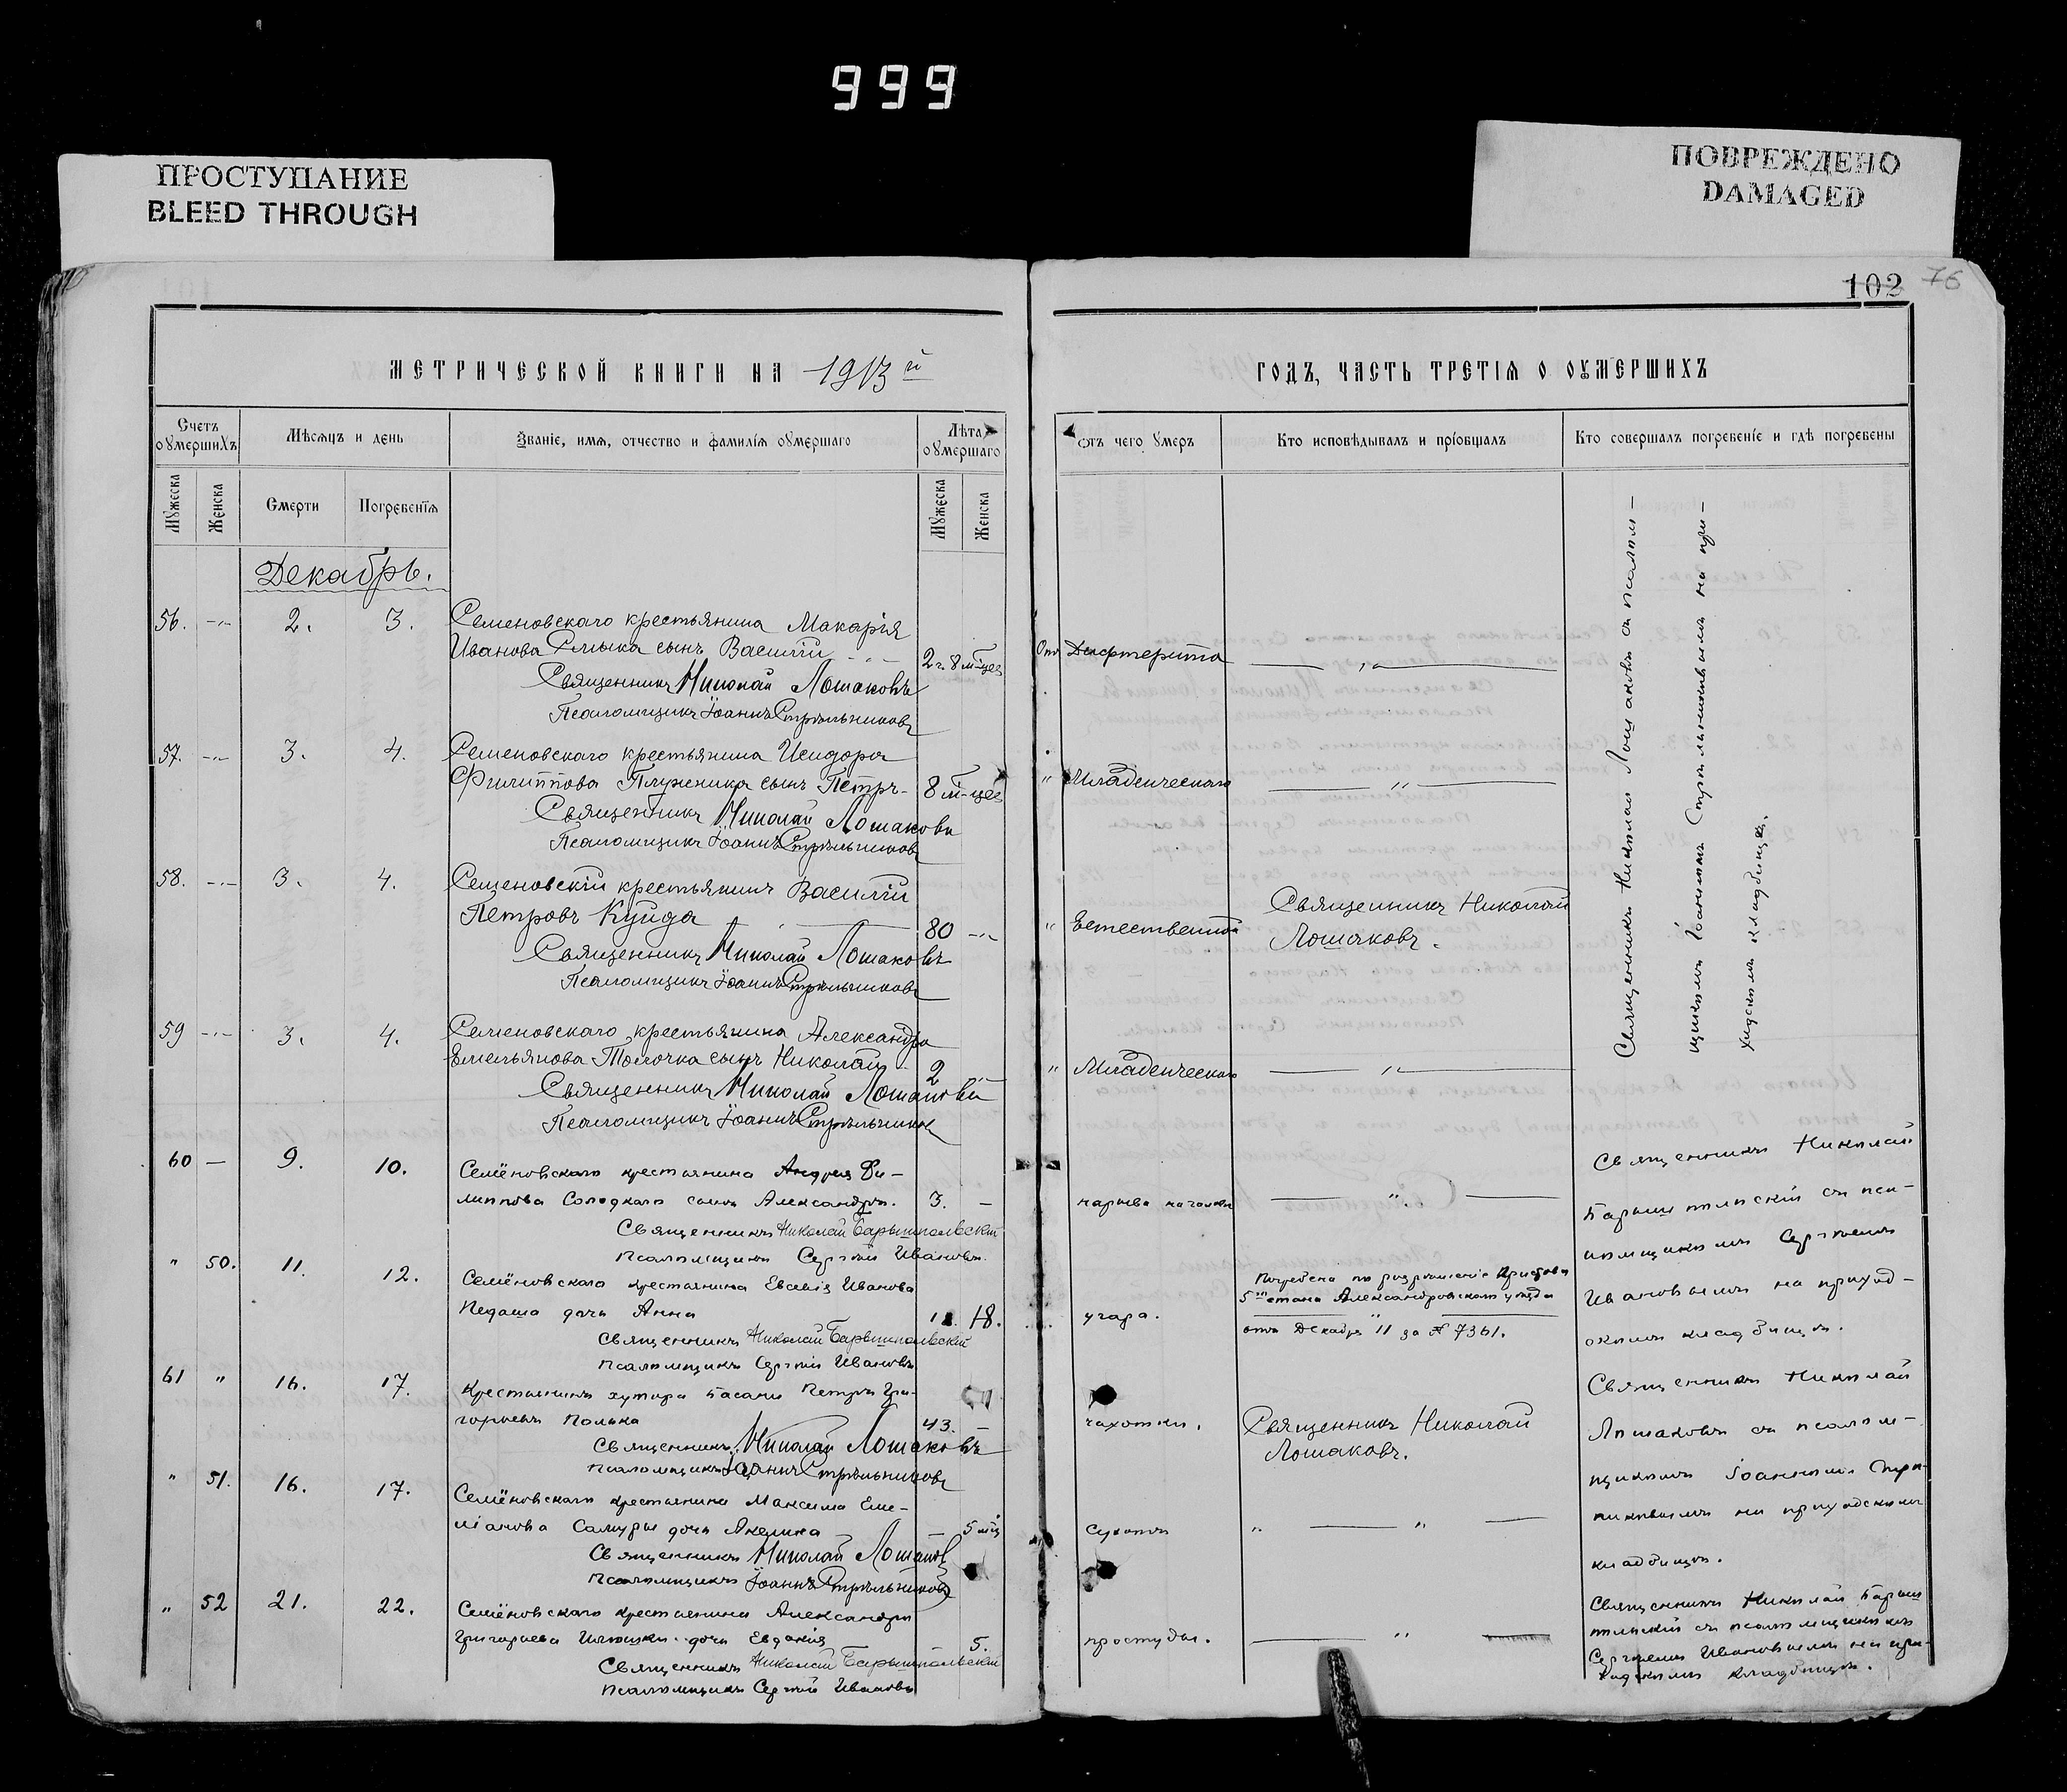 999
ПРОСТУПАНИЕ
BLEED THROUGH
ПОВРЕЖДЕНО
DAMAGED
102 76
МЕТРИЧЕСКОЙ КНИГИ НА 1913й
Счетъ оумершихъ
Мѣсяцъ и день
Званіе, имя, отчество и фамилія оумершаго
Лѣта оумершаго
Мужеска
Женска
Смерти
Погребенія
Мужеска
Женска
Декабрь.
56. -"- 2. 3. Семеновскаго крестьянина Макарія
Иванова сынъ Василій -"- 2 г. 8 м-цев
Священникъ Николай Лошаковъ
Псаломщикъ Іоаннъ Стрѣльниковъ
57. -"- 3. 4. Семеновскаго крестьянина Исидора
Филиппова Плуженика сынъ Петръ - 8 м-цев
Священникъ Николай Лошаковъ
Псаломщикъ Іоаннъ Стрѣльниковъ
58. -"- 3. 4. Семеновскій крестьянинъ Василій
Петровъ Куйда 80 -"-
Священникъ Николай Лошаковъ
Псаломщикъ Іоаннъ Стрѣльниковъ
59 -"- 3. 4. Семеновскаго крестьянина Александра
Емельянова Толочка сынъ Николай 2
Священникъ Николай Лошаковъ
Псаломщикъ Іоаннъ Стрѣльниковъ
60 — 9. 10. Семёновскаго крестьянина Андрея Фи-
липпова Солодкаго сынъ Александръ. 3. —
Священникъ Николай Барышпольскій
Псаломщикъ Сергій Ивановъ.
" 50. 11. 12. Семёновскаго крестьянина Евсевія Иванова
Педаша дочь Анна 18.
Священникъ Николай Барышпольскій
Псаломщикъ Сергій Ивановъ
61 " 16. 17. Крестьянинъ хутора Басани Петръ Гри-
горьевъ Полька 43. —
Священникъ Николай Лошаковъ
Псаломщикъ Іоаннъ Стрѣльниковъ
" 51. 16. 17. Семёновскаго крестьянина Максима Еме-
ліанова Самуры дочь Акелина — 5 мц
Священникъ Николай Лошаковъ
Псаломщикъ Іоаннъ Стрѣльниковъ
" 52 21. 22. Семёновскаго крестьянина Александра
Григорьева дочь Евдокія 5.
Священникъ Николай Барышпольскій
Псаломщикъ Сергій Ивановъ
ГОДЪ, ЧАСТЬ ТРЕТІЯ О ОУМЕРШИХЪ
отъ чего умеръ
Кто исповѣдывалъ и пріобщалъ
Кто совершалъ погребеніе и гдѣ погребены
Отъ Дифтерита — " —
" Младенческаго — " —
" Естественной Священникъ Николай
Лошаковъ.
" Младенческаго — " —
Священникъ Николай Лошаковъ съ псалом-
щикомъ Іоанномъ Стрѣльниковымъ на при-
ходскомъ кладбищѣ.
нарыва на головѣ — " —
Священникъ Николай
Барышпольскій съ пса-
ломщикомъ Сергіемъ
Ивановымъ на приход-
скомъ кладбищѣ.
угара.
Погребена по разрѣшенію Пристава
5го стана Александровскаго уѣзда
отъ Декабря 11 за № 7361.
чахотки. Священникъ Николай
Лошаковъ.
Священникъ Николай
Лошаковъ съ псалом-
щикомъ Іоанномъ Стрѣль-
никовымъ на приходскомъ
кладбищѣ.
Сухотъ " — " —
простуды. — " —
Священникъ Николай Барыш
польскій съ псаломщикомъ
Сергіемъ Ивановымъ на при-
ходскомъ кладбищѣ.